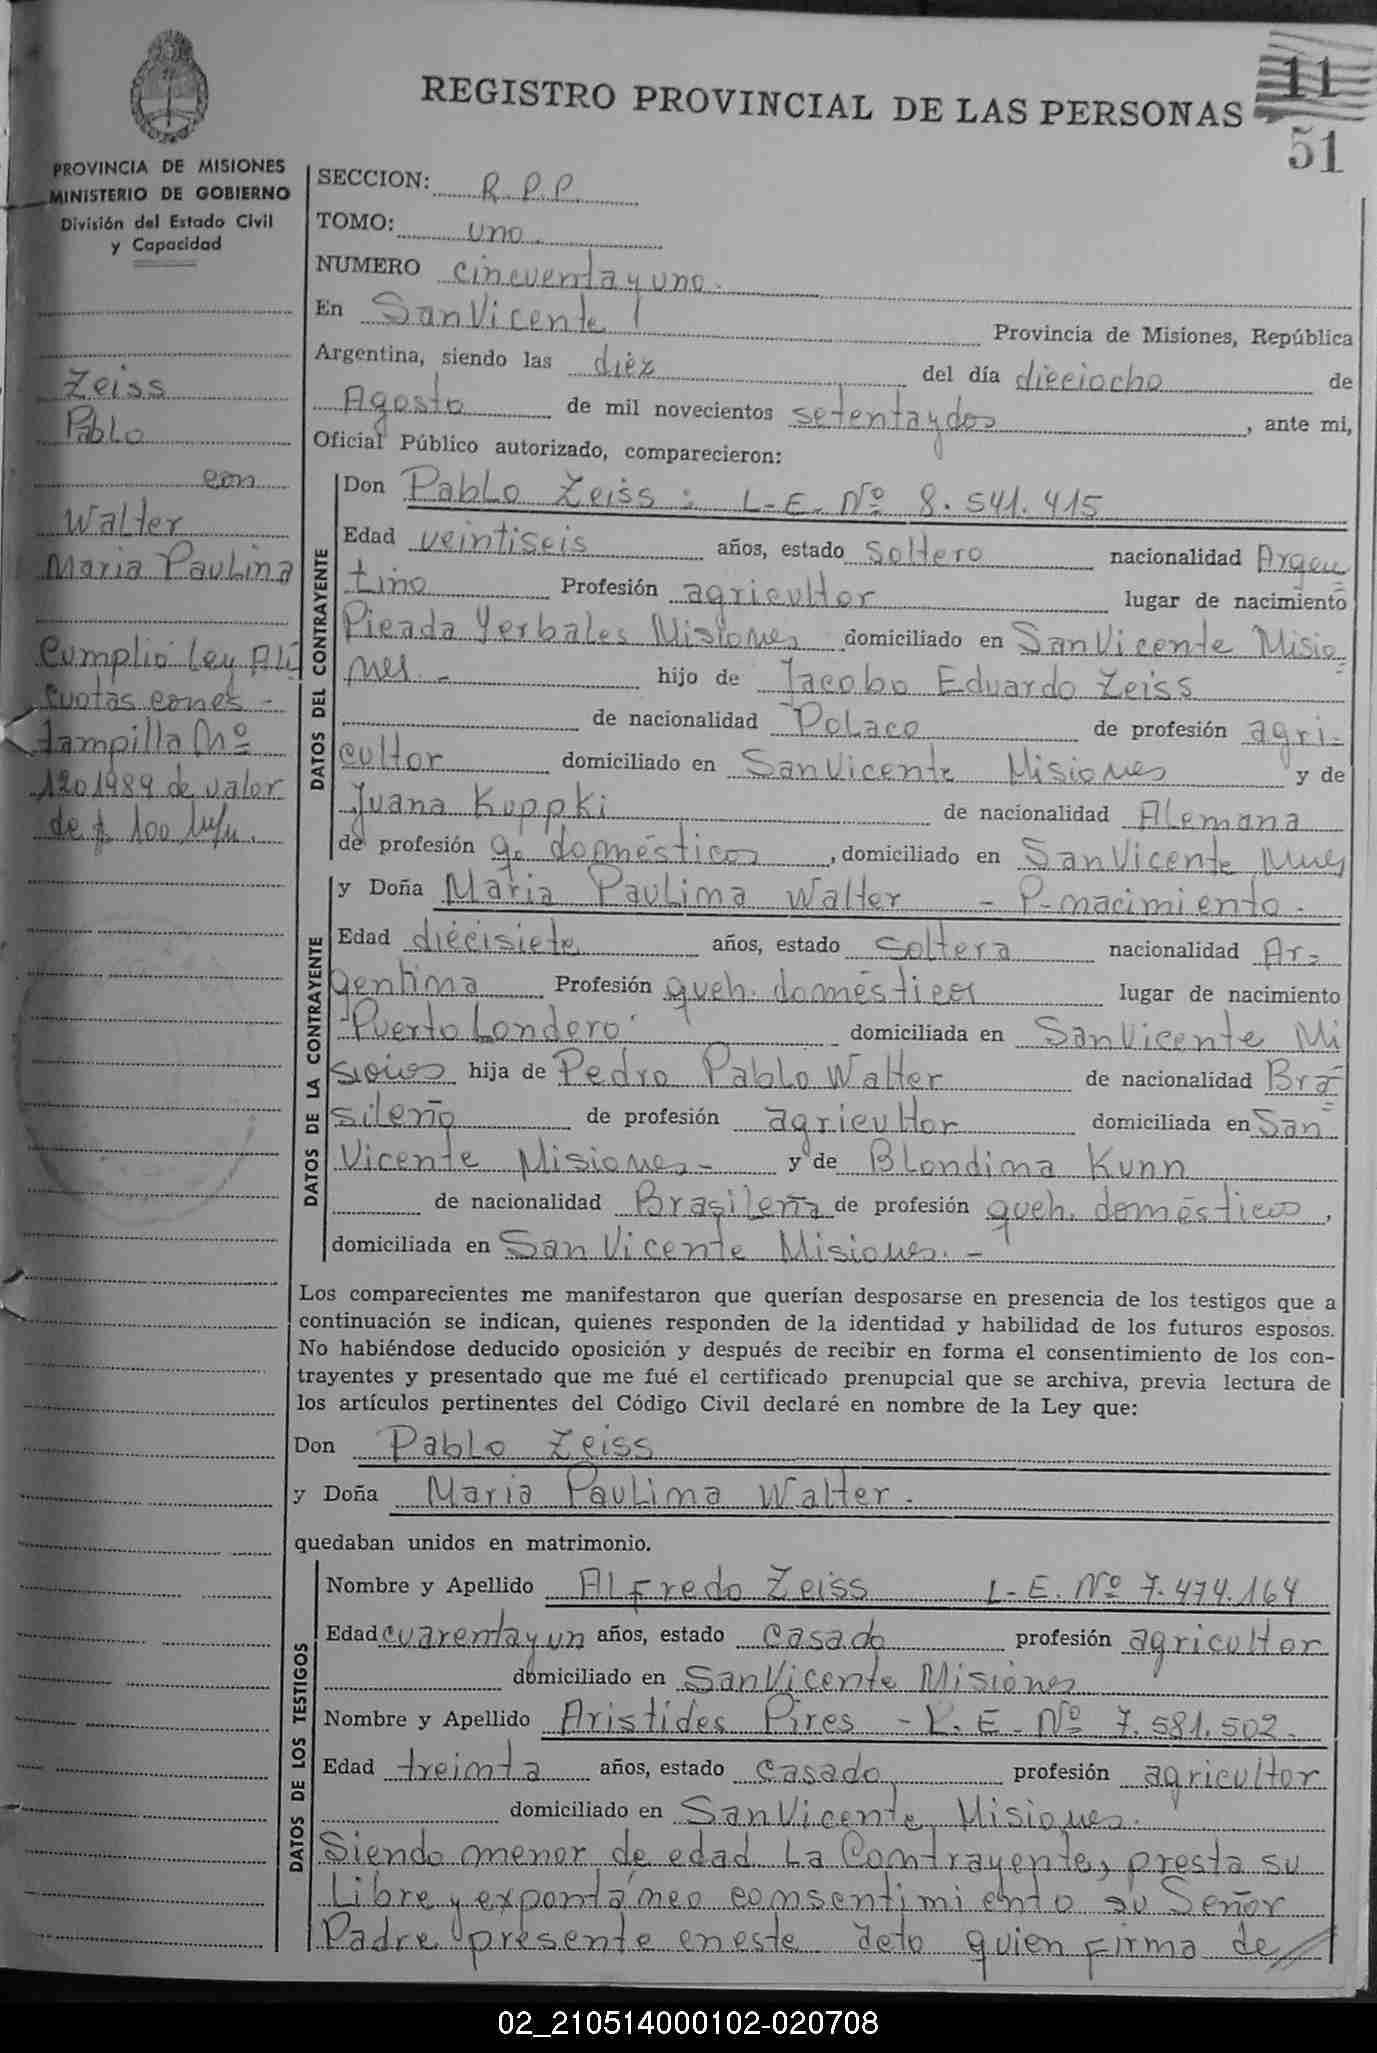 REGISTRO PROVINCIAL DE LAS PERSONAS
11
51
PROVINCIA DE MISIONES
MINISTERIO DE GOBIERNO
División del Estado Civil
y Capacidad
Zeiss
Pablo
con
Walter
Maria Paulina
Cumplió Ley Alí
cuotas con es-
tampilla Nº
1201989 de valor
de $ 100 m/n.
SECCION: R.P.P.
TOMO: uno.
NUMERO cincuenta y uno.
En San Vicente Provincia de Misiones, República
Argentina, siendo las diez del día dieciocho de
Agosto de mil novecientos setenta y dos, ante mi,
Oficial Público autorizado, comparecieron:
DATOS DEL CONTRAYENTE
Don Pablo Zeiss: L-E. Nº 8.541.415
Edad veintiseis años, estado Soltero nacionalidad Argen
tino Profesión agricultor lugar de nacimiento
Picada Yerbales Misiones domiciliado en San Vicente Misio
nes.- hijo de Jacobo Eduardo Zeiss
de nacionalidad Polaco de profesión agri-
cultor domiciliado en San Vicente Misiones y de
Juana Koppki de nacionalidad Alemana
de profesión q. domésticos, domiciliado en San Vicente Mnes
DATOS DE LA CONTRAYENTE
y Doña Maria Paulina Walter - P-nacimiento.
Edad diecisiete años, estado Soltera nacionalidad Ar-
gentina Profesión queh. domésticos lugar de nacimiento
"Puerto Londero" domiciliada en San Vicente Mi
siones hija de Pedro Pablo Walter de nacionalidad Bra
sileño de profesión agricultor domiciliada en San
Vicente Misiones- y de Blondina Kunn
de nacionalidad Brasileña de profesión queh. domésticos,
domiciliada en San Vicente Misiones.-
Los comparecientes me manifestaron que querían desposarse en presencia de los testigos que a
continuación se indican, quienes responden de la identidad y habilidad de los futuros esposos.
No habiéndose deducido oposición y después de recibir en forma el consentimiento de los con-
trayentes y presentado que me fué el certificado prenupcial que se archiva, previa lectura de
los artículos pertinentes del Código Civil declaré en nombre de la Ley que:
Don Pablo Zeiss
y Doña Maria Paulina Walter.
quedaban unidos en matrimonio.
DATOS DE LOS TESTIGOS
Nombre y Apellido Alfredo Zeiss L-E. Nº 7.474.164
Edad cuarenta y un años, estado Casado profesión agricultor
domiciliado en San Vicente Misiones
Nombre y Apellido Aristides Pires - L.E- Nº 7.581.502.
Edad treinta años, estado Casado profesión agricultor
domiciliado en San Vicente Misiones.
Siendo menor de edad La Contrayente, presta su
Libre y expontáneo consentimiento su Señor
Padre presente en este Acto quien firma de//
02_210514000102-020708